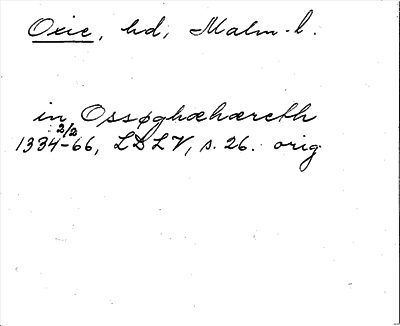 Oxie, hd, Malm. l.
in Ossøghæhæreth
2/2
1334-66, LDLV, s. 26. orig